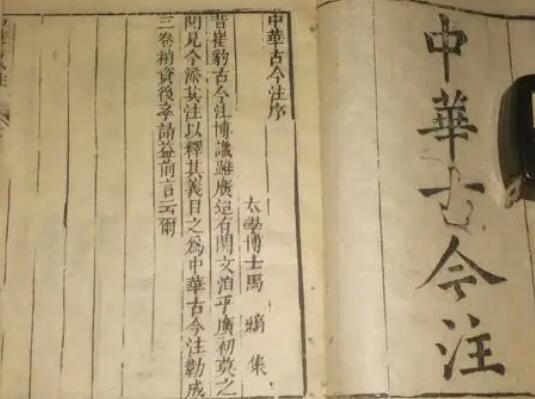 中華古今注
中華古今注序
太學博士馬縞集
昔崔豹古今注博識雖廣迨有闕文洎乎廣初莫之
聞見今添其注以釋其義目之爲中華古今注勒成
三卷稍資後學請益前言云爾